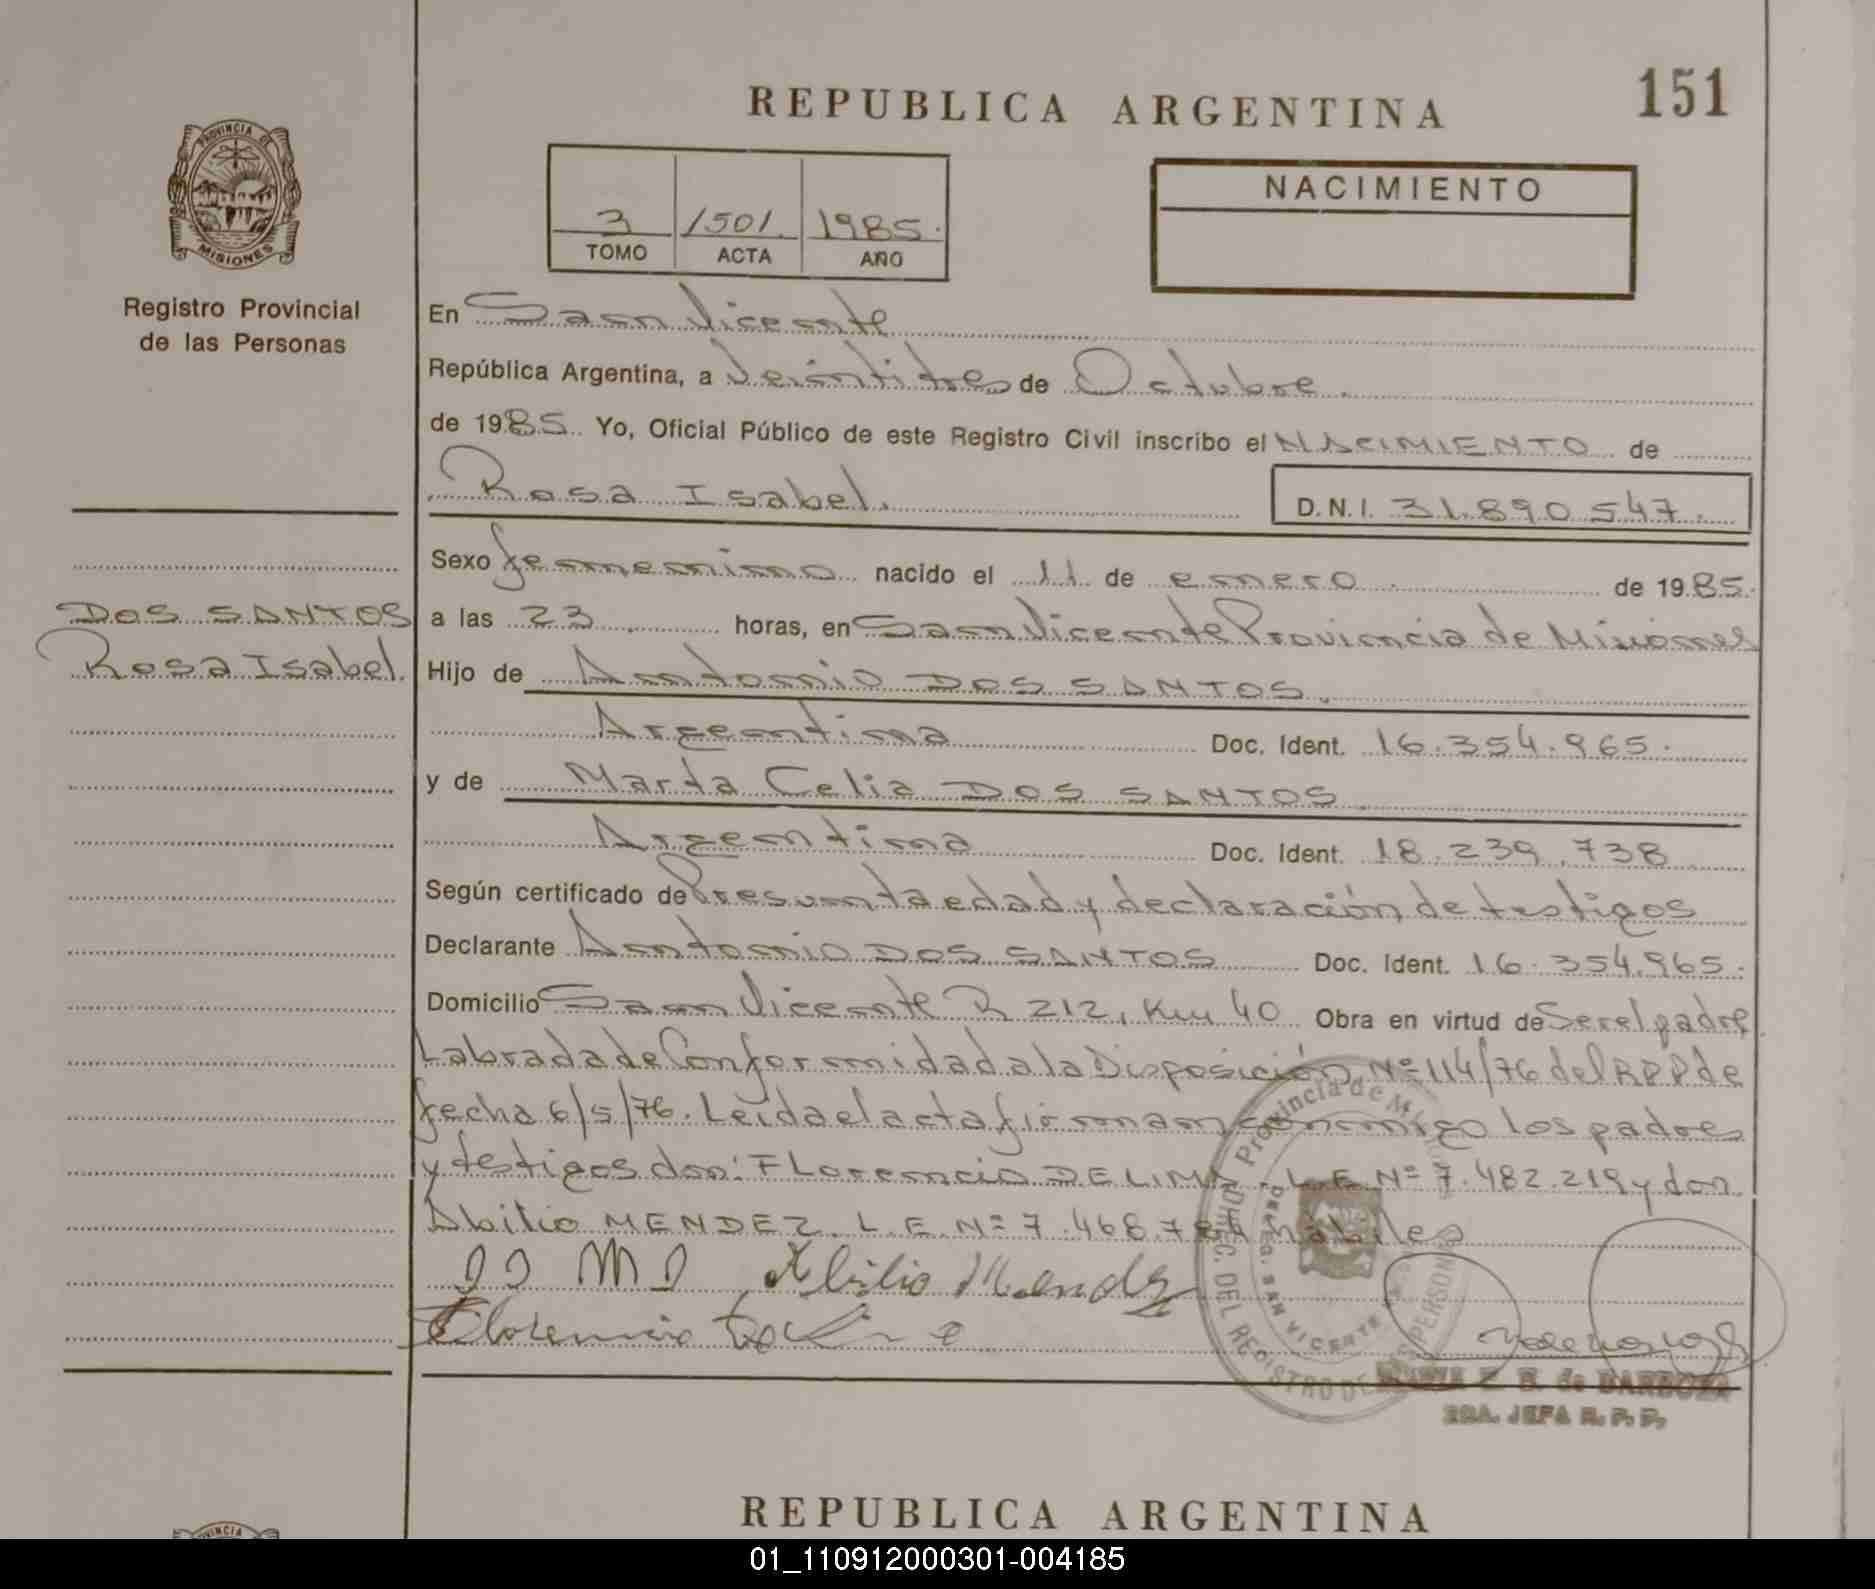 REPUBLICA ARGENTINA
151
PROVINCIA DE
MISIONES
Registro Provincial
de las Personas
3 1501. 1985.
TOMO ACTA AÑO
NACIMIENTO
En San Vicente
República Argentina, a Veintitres de Octubre.
de 1985. Yo, Oficial Público de este Registro Civil inscribo el NACIMIENTO de
Rosa Isabel.
D.N.I. 31.890.547.
Sexo femenino nacido el 11 de enero de 1985.
DOS SANTOS
Rosa Isabel.
a las 23 horas, en San Vicente Provincia de Misiones
Hijo de Antonio DOS SANTOS.
Argentina Doc. Ident. 16.354.965.
y de Marta Celia DOS SANTOS
Argentina Doc. Ident. 18.239.738
Según certificado de Presunta edad y declaración de testigos
Declarante Antonio DOS SANTOS Doc. Ident. 16.354.965.
Domicilio San Vicente R 212, Km 40 Obra en virtud de Ser el padre
Labrada de Conformidad a la Disposición Nº 114/76 del RPP de
fecha 6/5/76. Leida el acta firman conmigo los padres
y testigos don: Florencio DE LIMA L.E. Nº 7.482.219 y don
Abilio MENDEZ. L.E. Nº 7.468.784 habiles
Abilio Mendez
Florencio
Provincia de
DIREC. DEL REGISTRO DE LAS PERSONAS
DELEG. SAN VICENTE
de BARBOZA
2DA. JEFA R.P.P.
REPUBLICA ARGENTINA
01_110912000301-004185